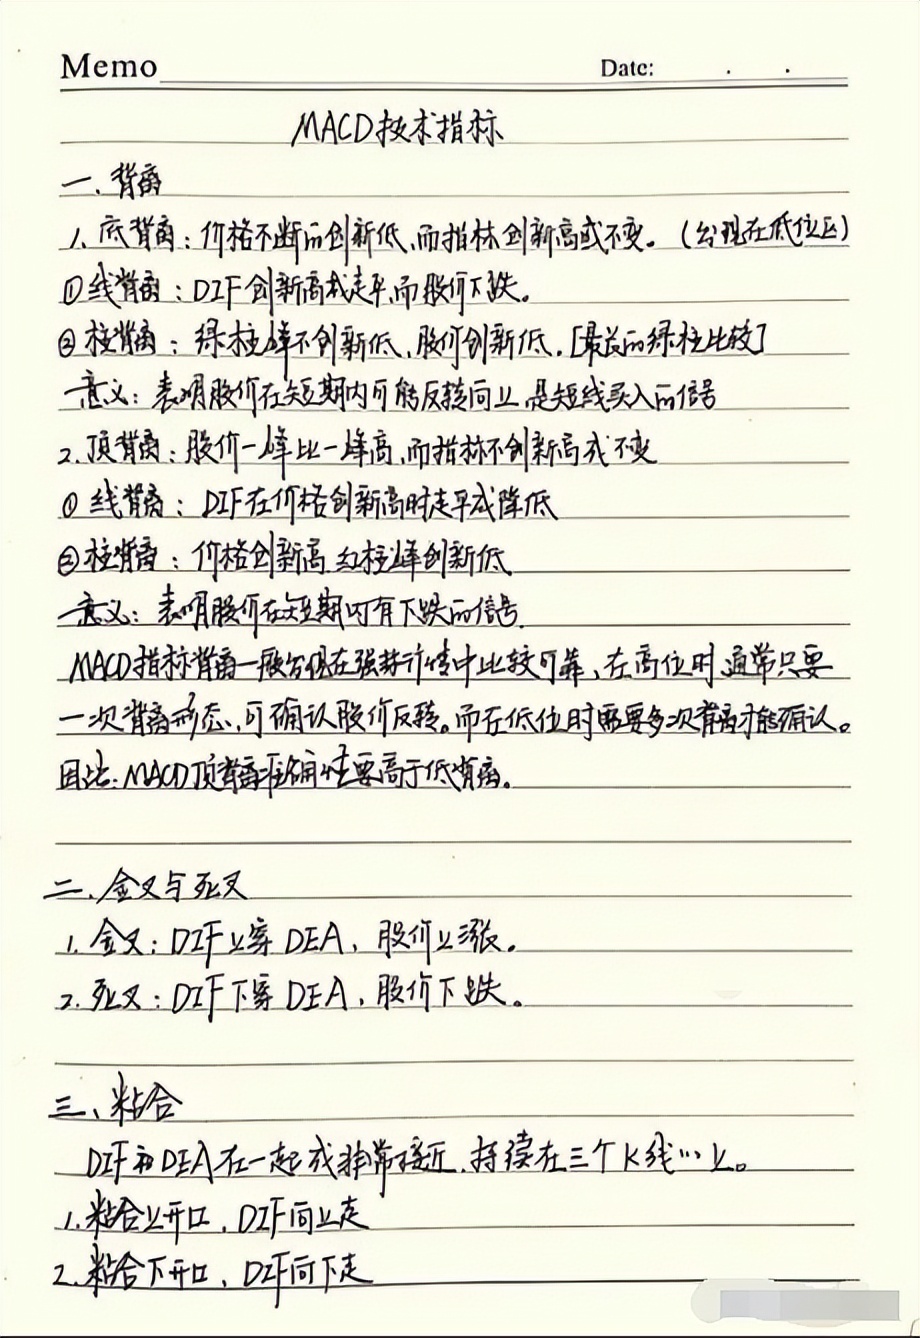 Memo Date: . .
MACD技术指标
一、背离
1、底背离：价格不断的创新低，而指标创新高或不变。（出现在低位区）
①线背离：DIF创新高或走平，而股价下跌。
②柱背离：绿柱峰不创新低，股价创新低。[最前的绿柱比较]
意义：表明股价在短期内可能反转向上，是短线买入的信号
2、顶背离：股价一峰比一峰高，而指标不创新高或不变
①线背离：DIF在价格创新高时走平或降低
②柱背离：价格创新高，红柱峰创新低
意义：表明股价在短期内有下跌的信号.
MACD指标背离一般出现在强势行情中比较可靠、在高位时通常只要
一次背离形态、可确认股价反转。而在低位时需要多次背离才能确认。
因此：MACD顶背离准确性要高于低背离。
二、金叉与死叉
1、金叉：DIF上穿DEA，股价上涨。
2、死叉：DIF下穿DEA，股价下跌。
三、粘合
DIF和DEA在一起或非常接近，持续在三个K线以上。
1、粘合上开口，DIF向上走
2、粘合下开口，DIF向下走